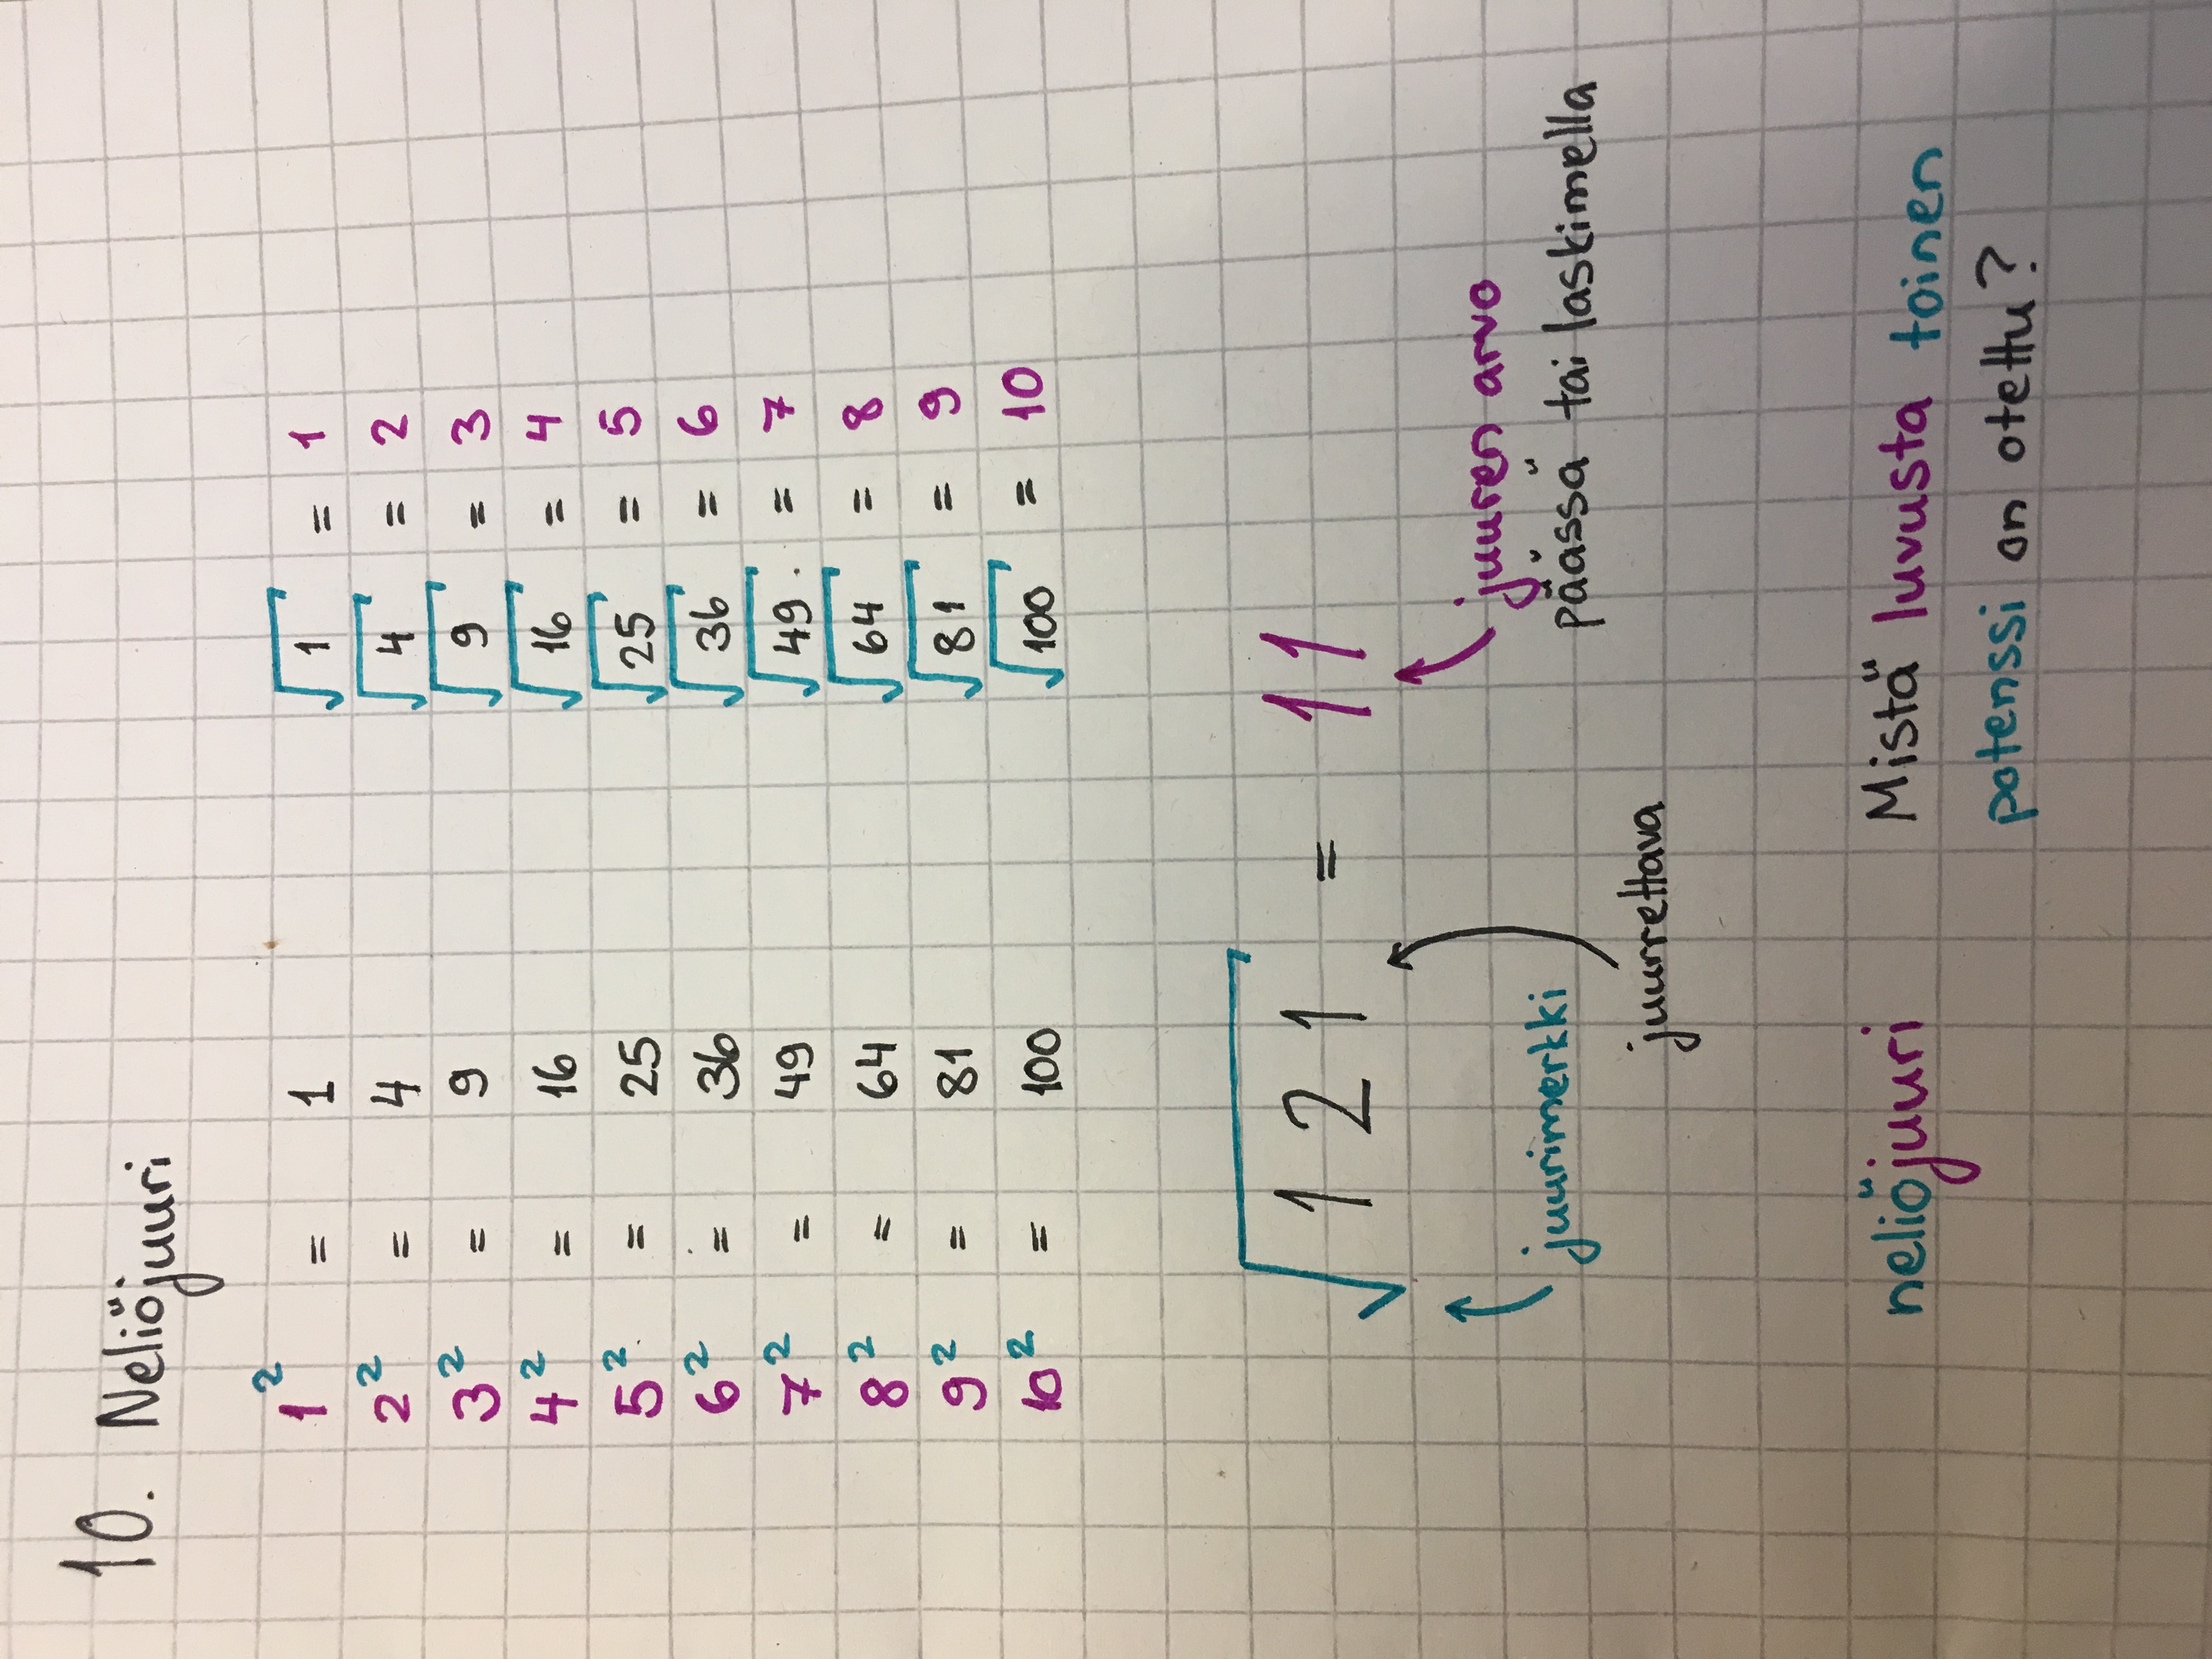 10. Neliöjuuri
1² = 1 √1 = 1
2² = 4 √4 = 2
3² = 9 √9 = 3
4² = 16 √16 = 4
5² = 25 √25 = 5
6² = 36 √36 = 6
7² = 49 √49 = 7
8² = 64 √64 = 8
9² = 81 √81 = 9
10² = 100 √100 = 10
√121 = 11
juurimerkki
juurrettava
juuren arvo
päässä tai laskimella
neliöjuuri Mistä luvusta toinen
potenssi on otettu?